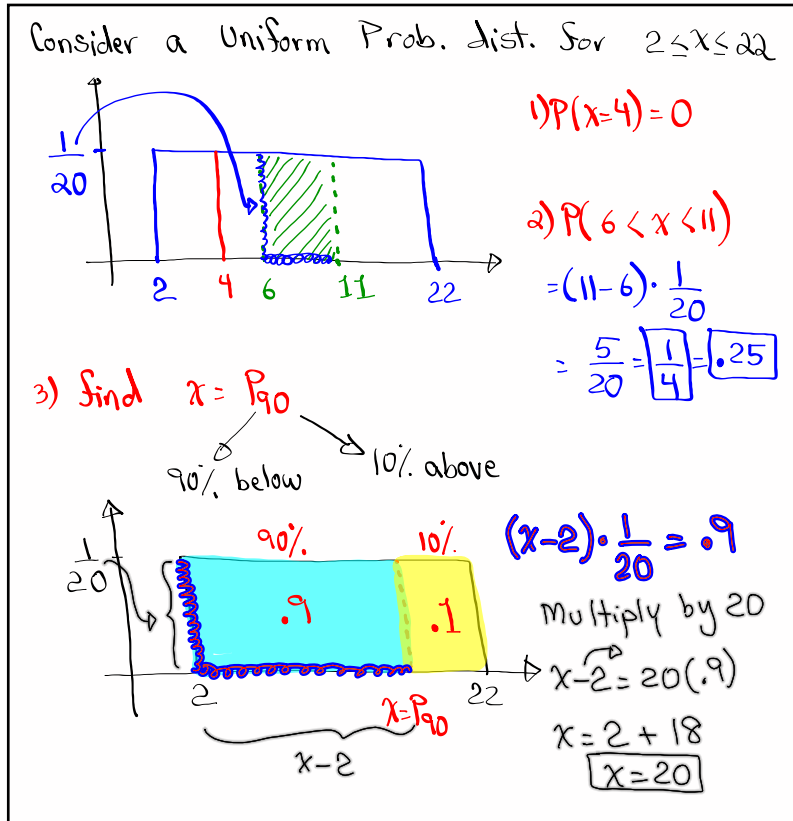 Consider a Uniform Prob. dist. for 2≤x≤22
1/20
2 4 6 11 22
1) P(x=4) = 0
2) P(6 < x < 11)
=(11-6)·1/20
= 5/20 = 1/4 = .25
3) find x = P90
90% below
10% above
1/20
90% 10%
.9 .1
2 x=P90 22
x-2
(x-2)·1/20 = .9
Multiply by 20
x-2=20(.9)
x=2+18
x=20